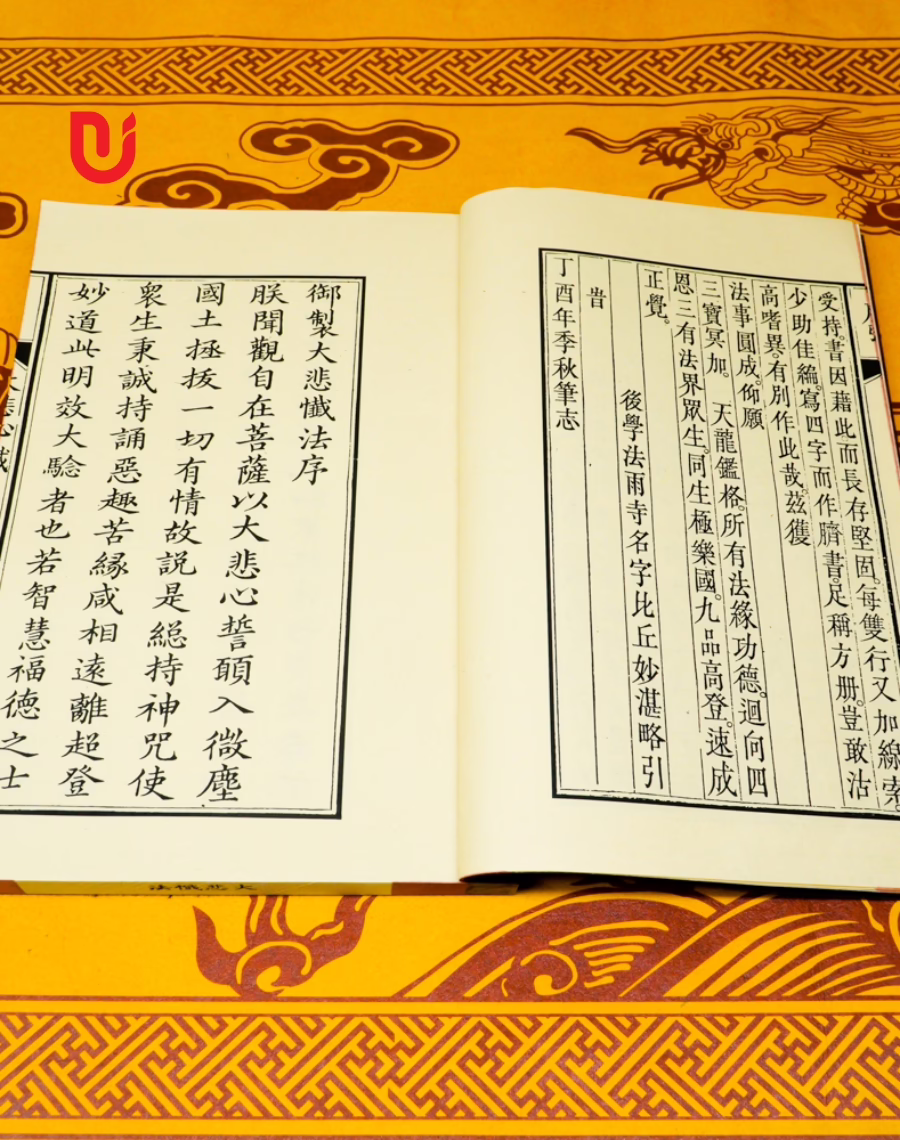 受持。書因藉此而長存堅固。每雙行又加線索
少助佳編。寫四字而作臍書。足稱方册。豈敢沽
高嗜異。有別作此哉。茲獲
法事圓成。仰願
三寶冥加。 天龍鑑格。所有法緣功德。迴向四
恩三有法界眾生。同生極樂國。九品高登。速成
正覺。
旹
後學法雨寺名字比丘妙湛略引
丁酉年季秋筆志
御製大悲懺法序
朕聞觀自在菩薩以大悲心誓願入微塵
國土拯拔一切有情故説是總持神咒使
衆生秉誠持誦惡趣苦縁咸相遠離超登
妙道此明效大驗者也若智慧福德之士
大悲懺法